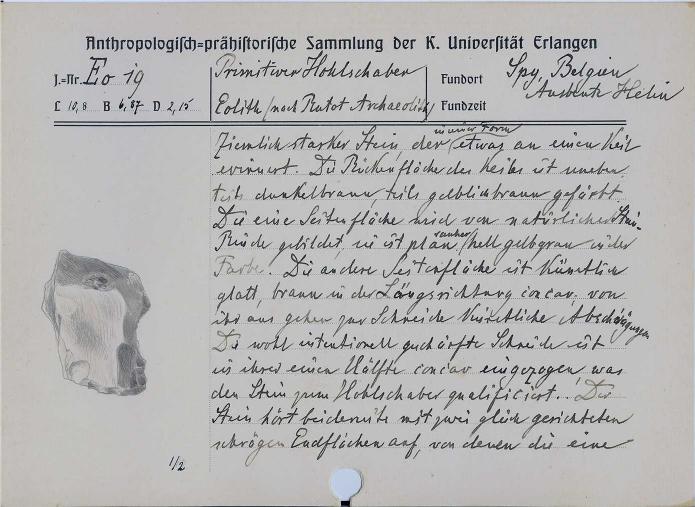 Anthropologisch=prähistorische Sammlung der K. Universität Erlangen
J.=Nr. Eo 19
Primitiver Hohlschaber
Fundort Spy, Belgien
Ausbeute Hélin
L 10,8 B 6,87 D 2,15
Eolith (nach Rutot Archaeolith)
Fundzeit
in einer Form
Ziemlich starker Stein, der etwas an einen Keil
erinnert. Die Rückenfläche des Keils ist uneben,
teils dunkelbraun, teils gelblichbraun gefärbt.
Die eine Seitenfläche wird von natürlicher Stein-
Rinde gebildet, sie ist plan, sauber, hell gelbgrau in der
Farbe. Die andere Seitenfläche ist Künstlich
glatt, braun in der Längsrichtung concav. von
ihr aus gehen zur Schneide Künstliche Abschrägungen
Die wohl intentionell geschärfte Schneide ist
in ihrer einen Hälfte concav eingezogen, was
den Stein zum Hohlschaber qualificiert. Der
Stein hört beiderseits mit zwei gleich gerichteten
schrägen Endflächen auf, von denen die eine
1/2